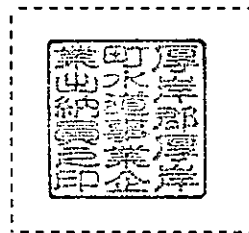 厚岸郡厚岸
町水道事業企
業出納員之印